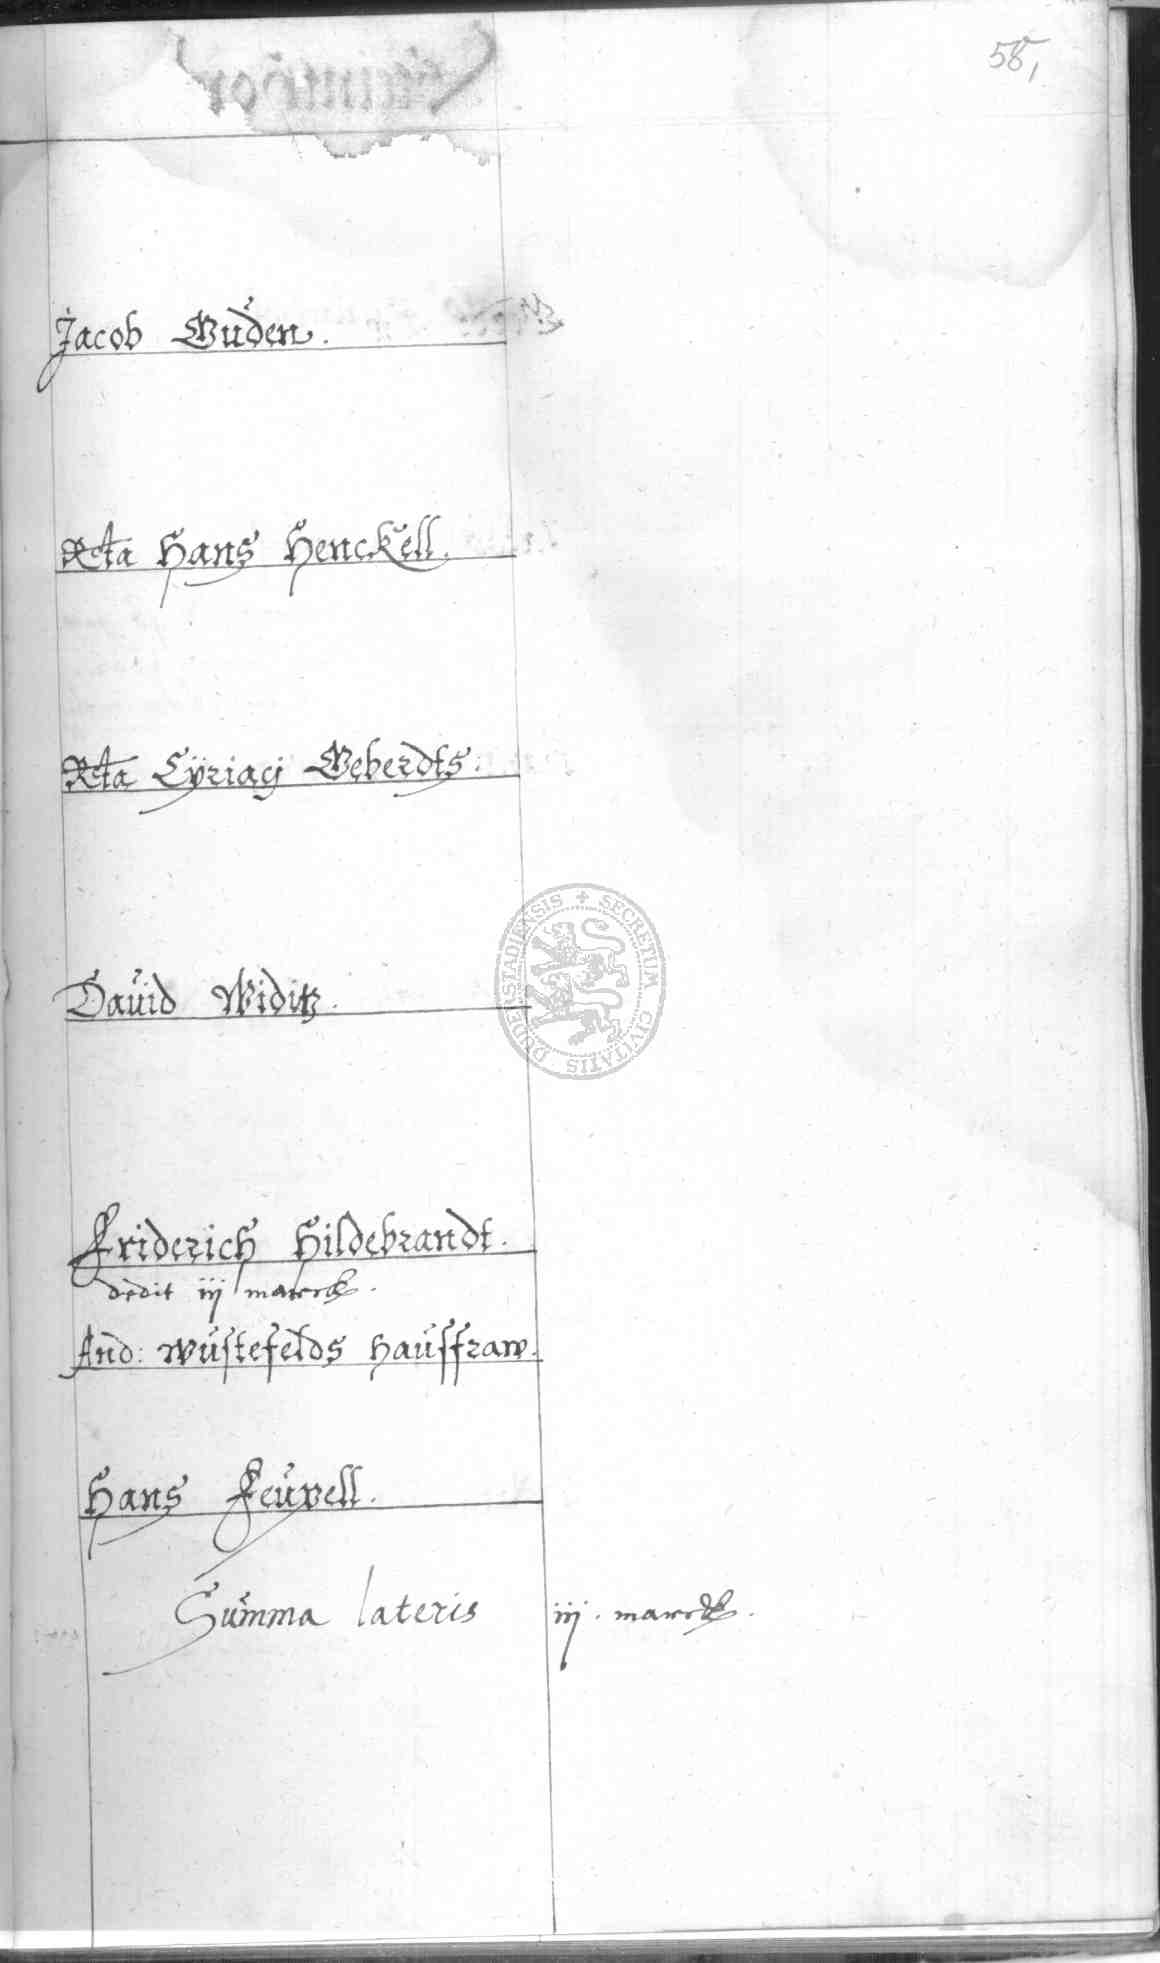 58,
Jacob Guden.
Rcta Hans Henckell.
Rcta Cÿriacj Geberdts.
Dauid Widitz.
Friderich Hildebrandt.
dedit iij marck.
And: Wustefelds haussfraw.
Hans Feupell.
Summa lateris iij. marck.
SECRETUM CIVITATIS DUDERSTADIENSIS